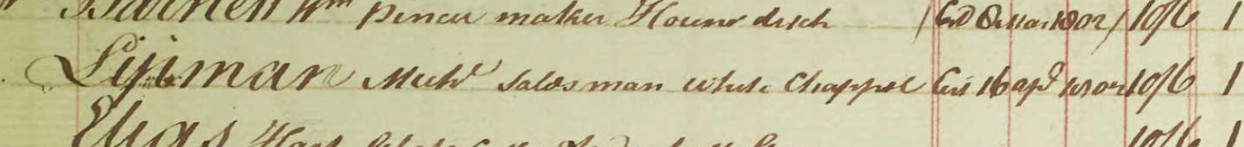 Barnett Wm pencil maker Hounsditch (Cd 8 Mar 1802) 10/6 1
Lyman Michl Salesman White Chappel Cer 16 apl 1802 10/6 1
Elias Hart 10/6 1